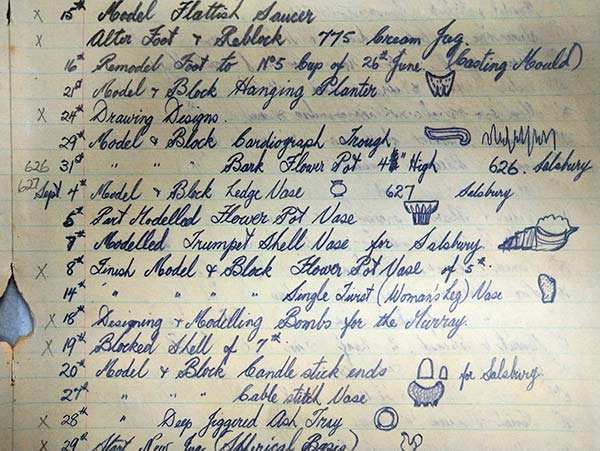 x 15th Model Flattish Saucer
x Alter Foot & Reblock 775 Cream Jug
16th Remodel Foot to No5 Cup of 26th June (Casting Mould)
21st Model & Block Hanging Planter
x 24th Drawing Designs.
29th Model & Block Cardiograph Trough
626 31st " " " Bark Flower Pot 4½" High 626. Salsbury
627 Sept 4th Model & Block Ledge Vase 627 Salsbury
5th Part Modelled Flower Pot Vase
7th Modelled Trumpet Shell Vase for Salsbury.
x 8th Finish Model & Block Flower Pot Vase of 5th.
14th " " " " Single Twist (Woman's Leg) Vase
x 18th Designing & Modelling Bombs for the Murray.
x 19th Blocked Shell of 7th
20th Model & Block Candle stick ends for Salsbury.
27th " " Cable stitch Vase
x 28th " Deep Jiggered Ash Tray
x 29th Start New Jug (Spherical Basis)